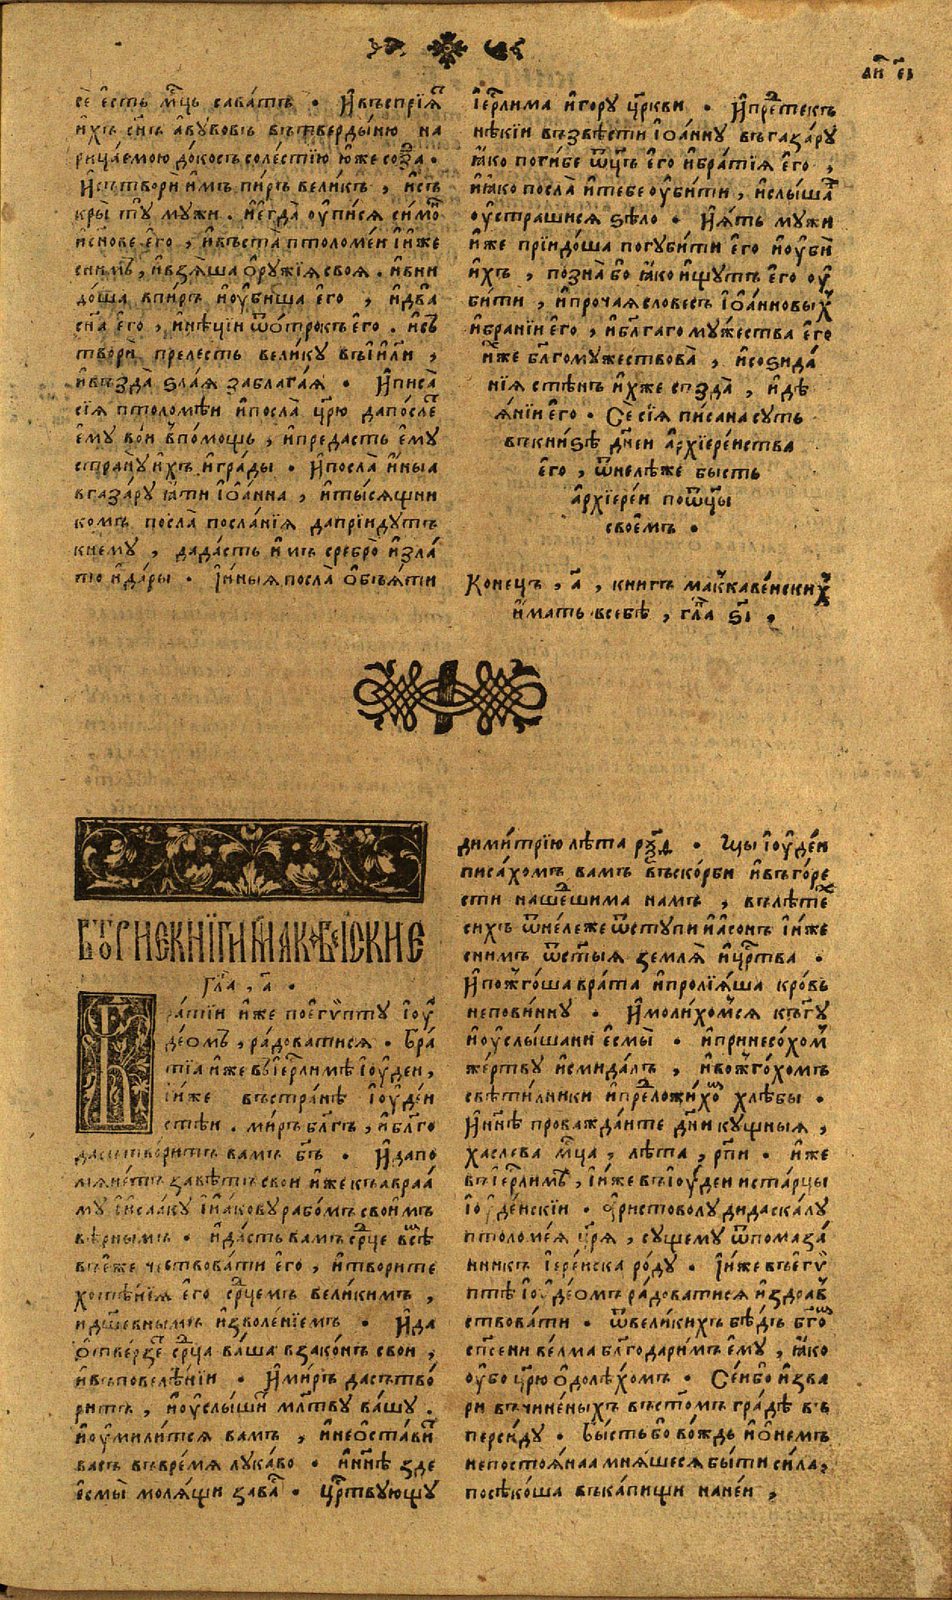 сѐ є҆сть мц҃ъ сава́тъ . И҆ въспрїѧ́т
и҆хъ сн҃ъ а҆бу́вовъ вътверды́ню на
рица́емою до́косъ соле́стїю ю҆́же созда .
И҆ сътворѝ и҆мъ пи́ръ вели́къ , и҆ съ
кры̀ тꙋ мужи . и҆ є҆гда̀ ѹ҆пи́сѧ си́мо
и҆ сн҃ове є҆го̀ , и҆ въста̀ птоломе́и и҆ и҆́же
с ни́мъ , и҆ взѧ́ша о҆рꙋ́жїѧ своѧ . и҆ вни
до́ша в пи́ръ и҆ ѹ҆би́ша є҆го̀ , и҆ два̀
сн҃а є҆го̀ , и҆ нѣ́цїи ѿ о҆трокъ є҆го . и҆ съ
творѝ пре́лесть вели́ку въ і҆и҃ли ,
и҆ въздадѐ ѕла́ѧ за благаѧ . И҆ писа̀
сїѧ̀ птоломѣ́и и҆ посла̀ цр҃ю да по́слет
є҆му̀ во́и в̾ по́мощь , и҆ преда́сть є҆мꙋ
странꙋ и҆́хъ и҆ гра́ды . И҆ посла̀ и҆́ныа
в газа́рꙋ ꙗ҆́ти і҆ѡа́нна , и҆ ты́сѧщни
комъ посла̀ посла́нїѧ да прїи́дутъ
к немꙋ , да да́сть и҆́мъ сребро̀ и҆ зла́
то и҆ да́ры . І҆ и҆́ныѧ посла̀ о҆бъѧ́ти
і҆ер҃лима и҆ го́рꙋ цр҃кви . И҆ прⷣетекъ
нѣ́кїи възвѣстѝ і҆ѡа́нну въ газа́рꙋ
ꙗ҆́ко поги́бе ѿц҃ъ є҆го̀ и҆ бра́тїѧ є҆го̀ ,
и҆ ꙗ҆́ко посла̀ и҆ тебе ѹ҆би́ти , и҆ слы́шав
ѹ҆страши́сѧ ѕѣло̀ . И҆ ꙗ҆́тъ мꙋжи
и҆̀же прїидо́ша погуби́ти є҆го̀ и҆ ѹ҆бѝ
и҆́хъ , позна̀ бо ꙗ҆́ко и҆́щутъ є҆го̀ ѹ҆
би́ти , и҆ про́чаѧ словесъ і҆ѡа́нновых
и҆ бра́нїи є҆го̀ , и҆ бл҃гаго му́жества є҆го
и҆̀же бл҃гомужествова̀ , и҆ созида́
нїѧ стѣ́нъ и҆́хже създа̀ , и҆ дѣ
ѧ́нїи є҆го̀ . Сѐ сїѧ̀ пи́сана суть
въ кни́ѕѣ дн҃еи а҆рхїере́иства
є҆го̀ , ѿнелѣ́же бы́сть
а҆рхїере́и по ѿц҃ы
свое́мъ .
Коне́цъ , а҃ , кни́гъ макъкаве́искихъ
и҆́мать въ себѣ̀ , гла҃ ѕ҃і .
ВТОРЫЕ КНИГИ МАКАВЕЙСКИЕ
Гла҃ , а҃ .
ра́тїи и҆̀же по є҆ги́пту і҆ѹ
де́омъ , ра́доватисѧ . Бра́
тїа и҆́же въ і҆ер҃ли́мѣ і҆ѹде́и ,
і҆ и҆́же въ стра́нѣ і҆ѹде́и
стѣи . ми́ръ бл҃гъ , и҆ бл҃го
да сътвори́тъ вамъ бг҃ъ . И҆ да по
мѧне́тъ завѣ́тъ свои и҆́же къ авраа́
му і҆ и҆саа́ку і҆ и҆а́кову рабо́мъ свои́мъ
вѣ́рнымъ . и҆ да́сть вамъ срⷣце всѣм
въ є҆́же чествова́ти є҆го̀ , и҆ твори́те
хотѣ́нїѧ є҆го̀ срⷣцемъ вели́кимъ ,
и҆ дш҃е́внымъ и҆зволе́нїемъ . И҆ да
о҆тве́рзет срⷣца ва́ша в зако́нъ свои ,
и҆ въ повелѣ́нїи . И҆ ми́ръ да сътво́
ритъ , и҆ ѹ҆слы́шитъ мл҃тву ва́шꙋ .
и҆ ѹ҆мили́тсѧ вамъ , и҆ не о҆ста́витъ
васъ въ вре́мѧ лука́во . и҆ нн҃ѣ зде
є҆смы̀ молѧ́щи за ва́съ . цр҃твующу
дими́трїю лѣта рѯ҃ѳ . Мы і҆ѹде́и
писа́хомъ вамъ въ ско́рби и҆ въ го́ре
сти наше́дшима намъ , въ лѣ́тех
сихъ ѿне́леже ѿступи и҆а́сонъ і҆ и҆́же
с нимъ ѿ ст҃ыѧ землѧ̀ и҆ цр҃тва .
И҆ пожго́ша врата̀ и҆ пролїѧ́ша кро́въ
непови́ннꙋ . И҆ моли́хомсѧ къ гꙋ
и҆ ѹ҆слы́шани є҆смы̀ . и҆ принесо́хом
же́ртвꙋ и҆ смида́лъ , и҆ вожго́хомъ
свѣти́лники и҆ предложи́хом хлѣ́бы .
И҆ нн҃ѣ прова́ждаите дн҃и кꙋщныѧ ,
хаслева мц҃а , лѣта , рп҃и . и҆́же
въ і҆ер҃ли́мѣ , і҆ и҆́же въ і҆ѹде́и и҆ ста́рцы
і҆ѹде́искїи . а҆ристоволу дидаска́лꙋ
птоломе́ѧ цр҃ѧ , сущему ѿ помаза́
нникъ і҆ере́иска ро́дꙋ . І҆ и҆́же въ є҆гѵ
птѣ і҆ѹде́омъ ра́доватисѧ и҆ здрав
ствова́ти . ѿ вели́кихъ бѣ́дъ бг҃ом
сп҃се́ни ве́лма бл҃годари́мъ є҆мꙋ , ꙗ҆́ко
ѹ҆́бо цр҃ю о҆долѣ́хомъ . Се́и бо и҆зва
ри въчине́ныхъ въ сто́мъ гра́дѣ въ
перси́дꙋ . Бы́сть бо во́ждь и҆ о҆ не́мъ
непостоѧ́наа мнѧ́щесѧ бы́ти си́ла ,
посѣко́ша въ ка́пищи нане́и ,